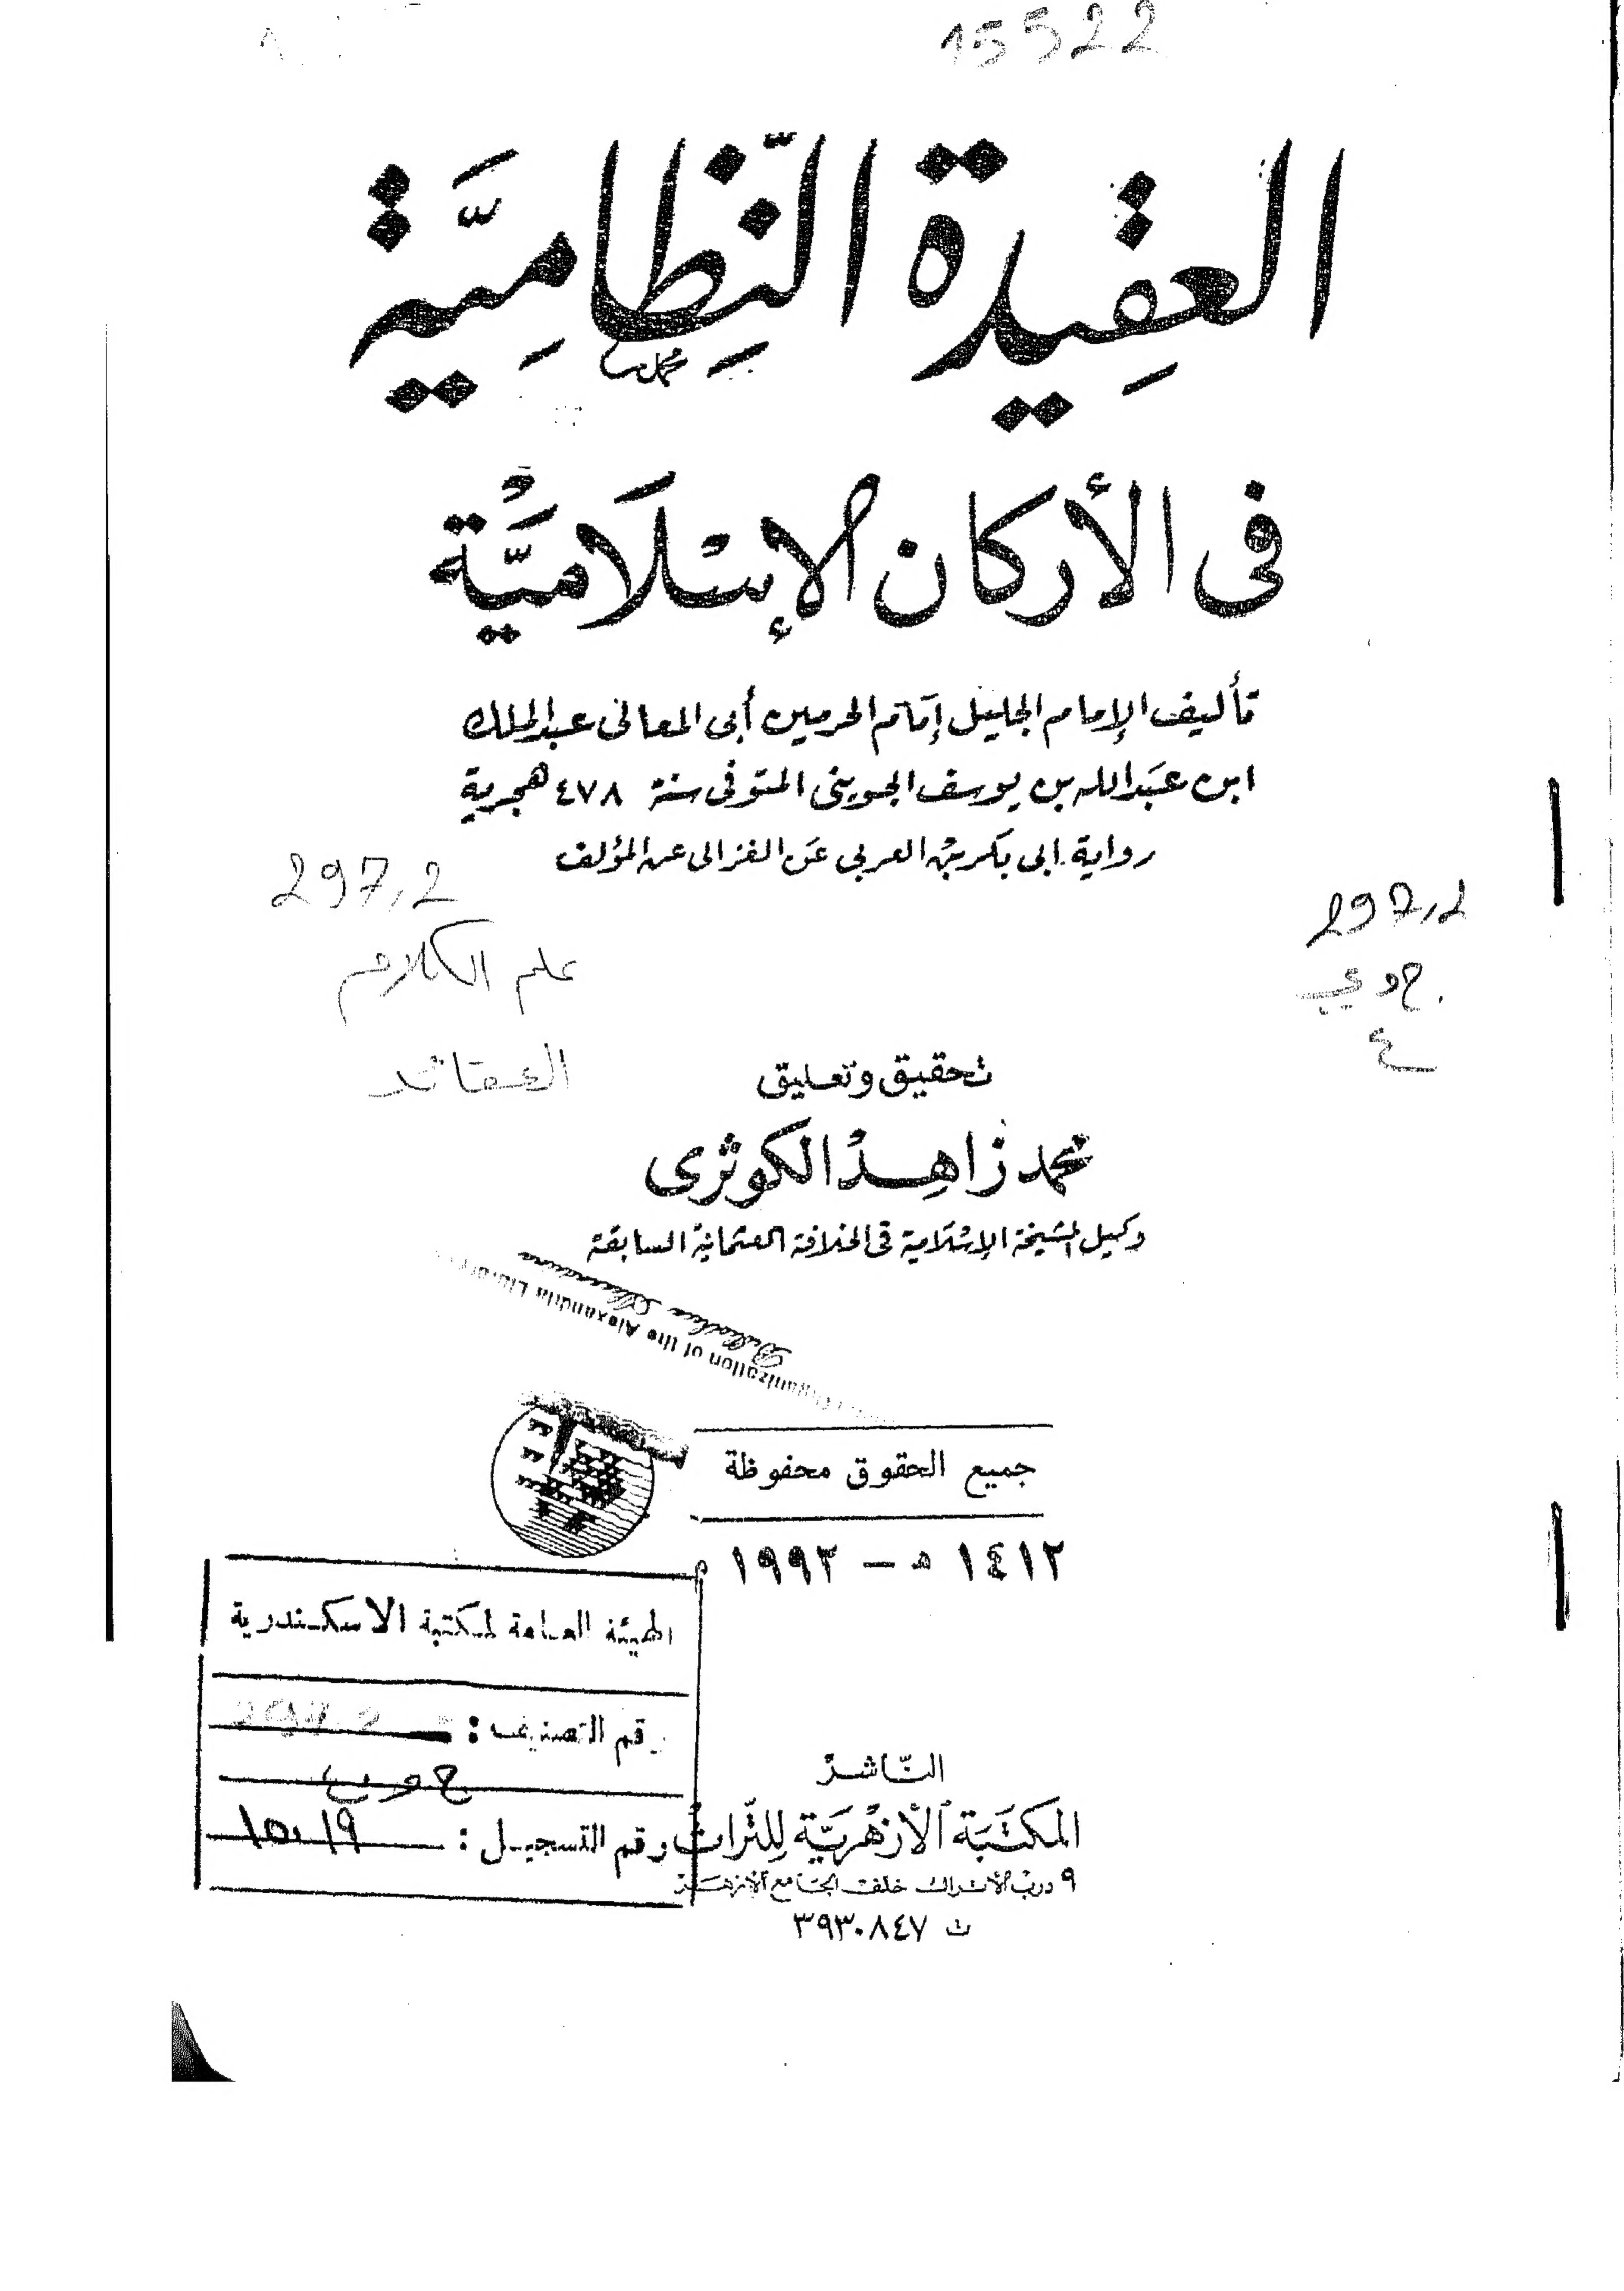 15522
العقيدة النِّظاميَّة
محمد
فى الأركان الإسلاميَّة
تأليف الإمام الجليل إمَام الحرمين أبى المعالى عبد الملك
ابن عبَد الله بن يوسف الجوينى المتوفى سنة ٤٧٨ هجرية
رواية ابى بكر بن العربى عَن الغزالى عن المؤلف
297,2
297,2
علم الكلام
ج و ي
ع
العقائد
تحقيق وتعليق
محمد زاهِد الكوثرى
وكيل المشيخة الإسْلامية فى الخلافة العثمانية السابقة
ganization of the Alexandria Library
جميع الحقوق محفوظة
١٤١٢ هـ – ١٩٩٢ م
الهيئة العامة لمكتبة الاسكندرية
رقم التصنيف : 297.2
ج و ي ع
رقم التسجيل : ١٥٠١٩
النَّاشرْ
المكتَبَة الأزهَريَّة لِلتُّراث
٩ درب الأتراك خلف الجَامع الأزهَر
ت ٣٩٣٠٨٤٧